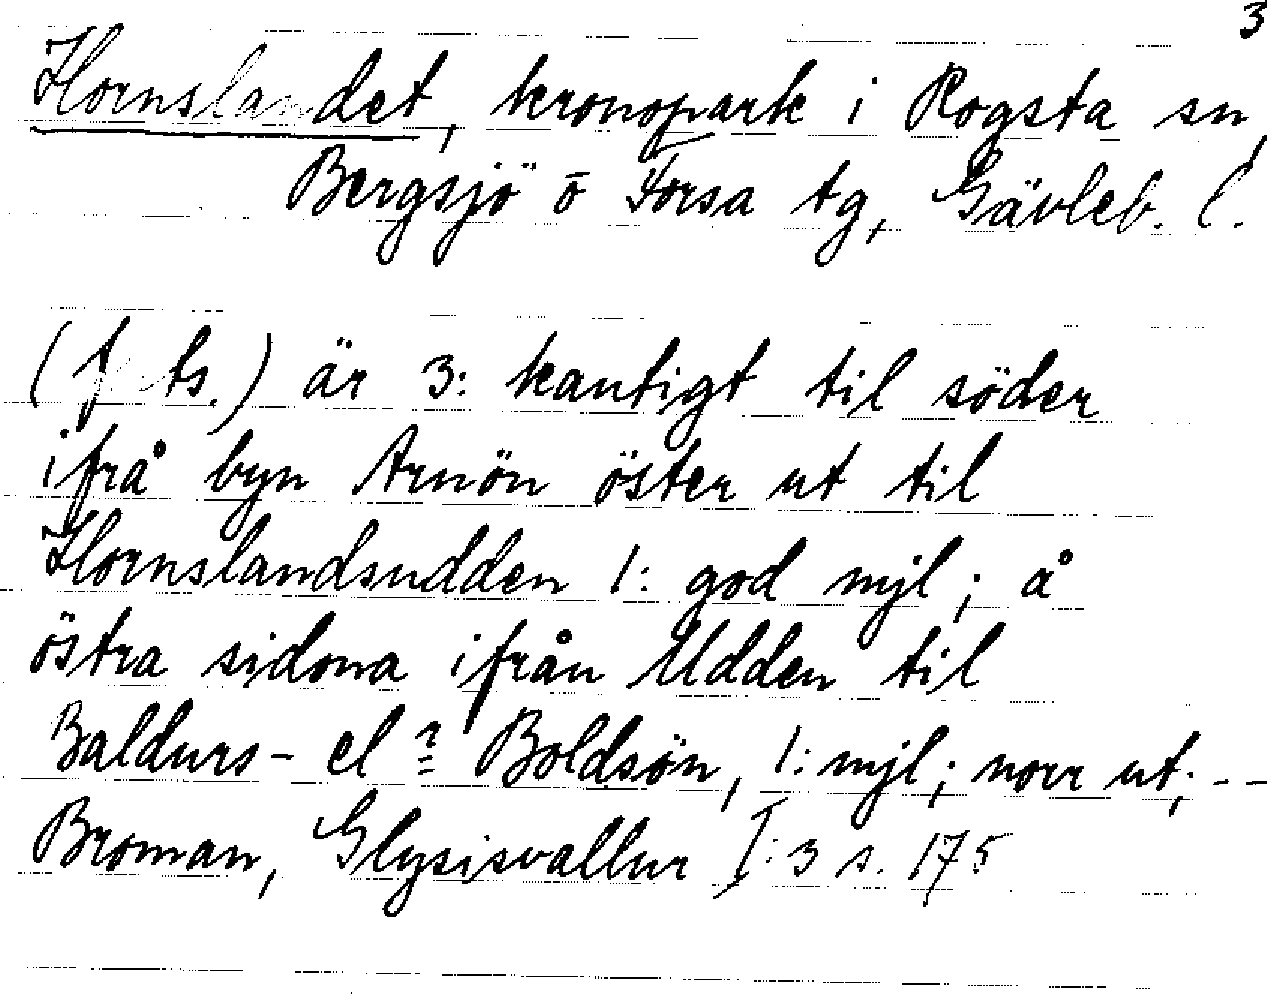 3
Hornslandet, kronopark i Rogsta sn,
Bergsjö o Forsa tg, Gävleb. l.
( ts.) är 3: kantigt til söder
ifrå byn Arnön öster ut til
Hornslandsudden 1: god mjl; å
östra sidona ifrån Udden til
Baldurs- el = Boldsön, 1: mjl; norr ut; - -
Broman, Glysisvallur I: 3 s. 175